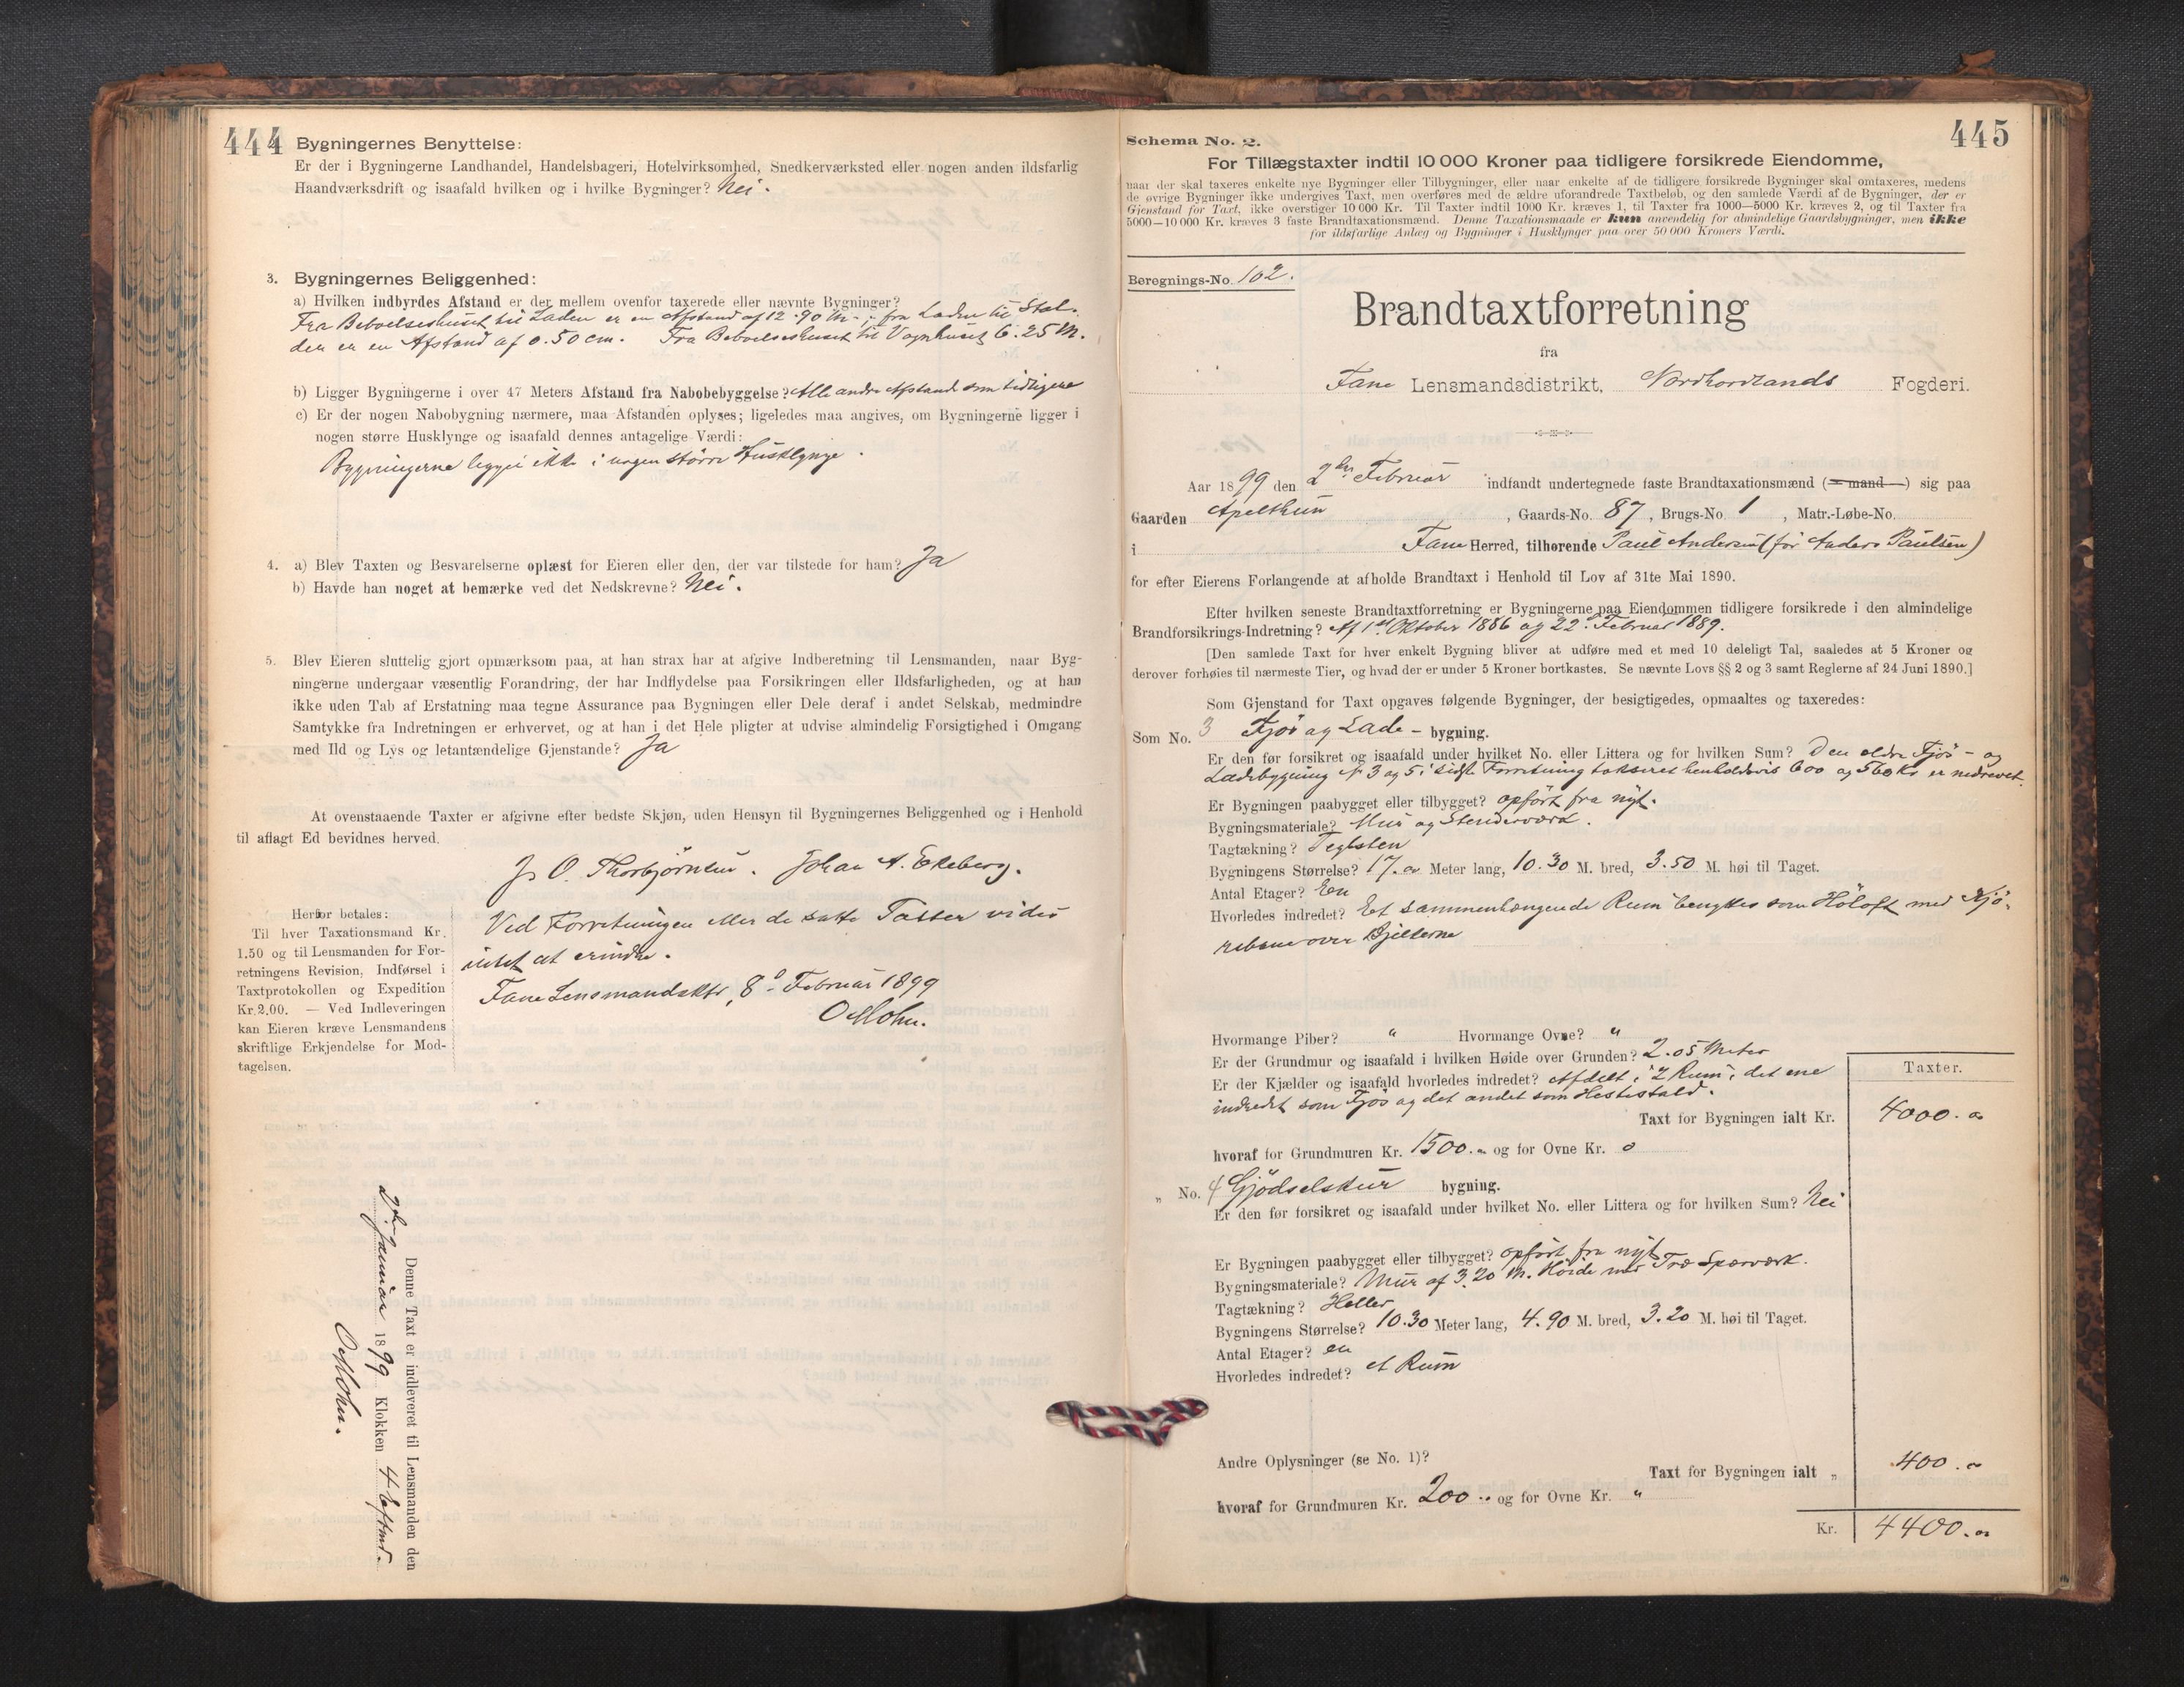 444
Bygningernes Benyttelse:
Er der i Bygningerne Landhandel, Handelsbageri, Hotelvirksomhed, Snedkerværksted eller nogen anden ildsfarlig
Haandværksdrift og isaafald hvilken og i hvilke Bygninger? Nei.
3. Bygningernes Beliggenhed:
a) Hvilken indbyrdes Afstand er der mellem ovenfor taxerede eller nævnte Bygninger?
Fra Beboelseshuset til Laden er en Afstand af 12.90 M.; fra Laden til Stal-
den er en Afstand af 0.50 cm. Fra Beboelseshuset til Vognhuset 6.25 M.
b) Ligger Bygningerne i over 47 Meters Afstand fra Nabobebyggelse? Alle andre Afstand som tidligere
c) Er der nogen Nabobygning nærmere, maa Afstanden oplyses; ligeledes maa angives, om Bygningerne ligger i
nogen større Husklynge og isaafald dennes antagelige Værdi:
Bygningerne ligger ikke i nogen större Husklynge.
4. a) Blev Taxten og Besvarelserne oplæst for Eieren eller den, der var tilstede for ham? Ja
b) Havde han noget at bemærke ved det Nedskrevne? Nei.
5. Blev Eieren sluttelig gjort opmærksom paa, at han strax har at afgive Indberetning til Lensmanden, naar Byg-
ningerne undergaar væsentlig Forandring, der har Indflydelse paa Forsikringen eller Ildsfarligheden, og at han
ikke uden Tab af Erstatning maa tegne Assurance paa Bygningen eller Dele deraf i andet Selskab, medmindre
Samtykke fra Indretningen er erhvervet, og at han i det Hele pligter at udvise almindelig Forsigtighed i Omgang
med Ild og Lys og letantændelige Gjenstande? Ja
At ovenstaaende Taxter er afgivne efter bedste Skjøn, uden Hensyn til Bygningernes Beliggenhed og i Henhold
til aflagt Ed bevidnes herved.
J. O. Thorbjørnsen. Johan A. Ekeberg.
Herfor betales:
Til hver Taxationsmand Kr.
1.50 og til Lensmanden for For-
retningens Revision, Indførsel i
Taxtprotokollen og Expedition
Kr. 2.00. — Ved Indleveringen
kan Eieren kræve Lensmandens
skriftlige Erkjendelse for Mod-
tagelsen.
Ved Forretningen eller de satte Taxter vides
intet at erindre.
Fane Lensmandsktr, 8d Februar 1899
O Mohn.
Denne Taxt er indleveret til Lensmanden den
2den Januar 1899 Klokken 4 Eftmd.
O Mohn.
445
Schema No. 2.
For Tillægstaxter indtil 10 000 Kroner paa tidligere forsikrede Eiendomme,
naar der skal taxeres enkelte nye Bygninger eller Tilbygninger, eller naar enkelte af de tidligere forsikrede Bygninger skal omtaxeres, medens
de øvrige Bygninger ikke undergives Taxt, men overføres med de ældre uforandrede Taxtbeløb, og den samlede Værdi af de Bygninger, der er
Gjenstand for Taxt, ikke overstiger 10 000 Kr. Til Taxter indtil 1000 Kr. kræves 1, til Taxter fra 1000—5000 Kr. kræves 2, og til Taxter fra
5000—10 000 Kr. kræves 3 faste Brandtaxationsmænd. Denne Taxationsmaade er kun anvendelig for almindelige Gaardsbygninger, men ikke
for ildsfarlige Anlæg og Bygninger i Husklynger paa over 50 000 Kroners Værdi.
Beregnings-No. 102.
Brandtaxtforretning
fra
Fane Lensmandsdistrikt, Nordhordlands Fogderi.
Aar 1899 den 2den Februar indfandt undertegnede faste Brandtaxationsmænd (= mand) sig paa
Gaarden Apelthun, Gaards-No. 87, Brugs-No. 1, Matr.-Løbe-No.
i Fane Herred, tilhørende Paul Andersen (för Anders Paulsen)
for efter Eierens Forlangende at afholde Brandtaxt i Henhold til Lov af 31te Mai 1890.
Efter hvilken seneste Brandtaxtforretning er Bygningerne paa Eiendommen tidligere forsikrede i den almindelige
Brandforsikrings-Indretning? Af 1st Oktober 1886 og 22d Februar 1889.
[Den samlede Taxt for hver enkelt Bygning bliver at udføre med et med 10 deleligt Tal, saaledes at 5 Kroner og
derover forhøies til nærmeste Tier, og hvad der er under 5 Kroner bortkastes. Se nævnte Lovs §§ 2 og 3 samt Reglerne af 24 Juni 1890.]
Som Gjenstand for Taxt opgaves følgende Bygninger, der besigtigedes, opmaaltes og taxeredes:
Som No. 3 Fjös og Lade - bygning.
Er den før forsikret og isaafald under hvilket No. eller Littera og for hvilken Sum? Den eldre Fjös- og
Ladebygning No 3 og 5 i sidste Forretning takseret henholdsvis 600 og 560 Kr er nedrevet.
Er Bygningen paabygget eller tilbygget? opfört fra nyt.
Bygningsmateriale? Mur og Stenderværk.
Tagtækning? Teglsten
Bygningens Størrelse? 17.00 Meter lang, 10.30 M. bred, 3.50 M. høi til Taget.
Antal Etager? En
Hvorledes indredet? Et sammenhængende Rum benyttes som Höloft med Kjö-
rebane over Bjelkerne
Hvormange Piber? " Hvormange Ovne? "
Er der Grundmur og isaafald i hvilken Høide over Grunden? 2.05 Meter
Er der Kjælder og isaafald hvorledes indredet? Afdelt i 2 Rum, det ene
indredet som Fjös og det andet som Hestestald.
Taxter.
Taxt for Bygningen ialt Kr. 4000.00
hvoraf for Grundmuren Kr. 1500.00 og for Ovne Kr. 0
" No. 4 Gjödselskur bygning.
Er den før forsikret og isaafald under hvilket No. eller Littera og for hvilken Sum? Nei
Er Bygningen paabygget eller tilbygget? opfört fra nyt
Bygningsmateriale? Mur af 3.20 M. Höide med Træ Spærværk.
Tagtækning? Heller
Bygningens Størrelse? 10.30 Meter lang, 4.90 M. bred, 3.20 M. høi til Taget.
Antal Etager? en
Hvorledes indredet? et Rum
Andre Oplysninger (se No. 1)?
Taxt for Bygningen ialt " 400.00
hvoraf for Grundmuren Kr. 200.00 og for Ovne Kr. "
Kr. 4400.00